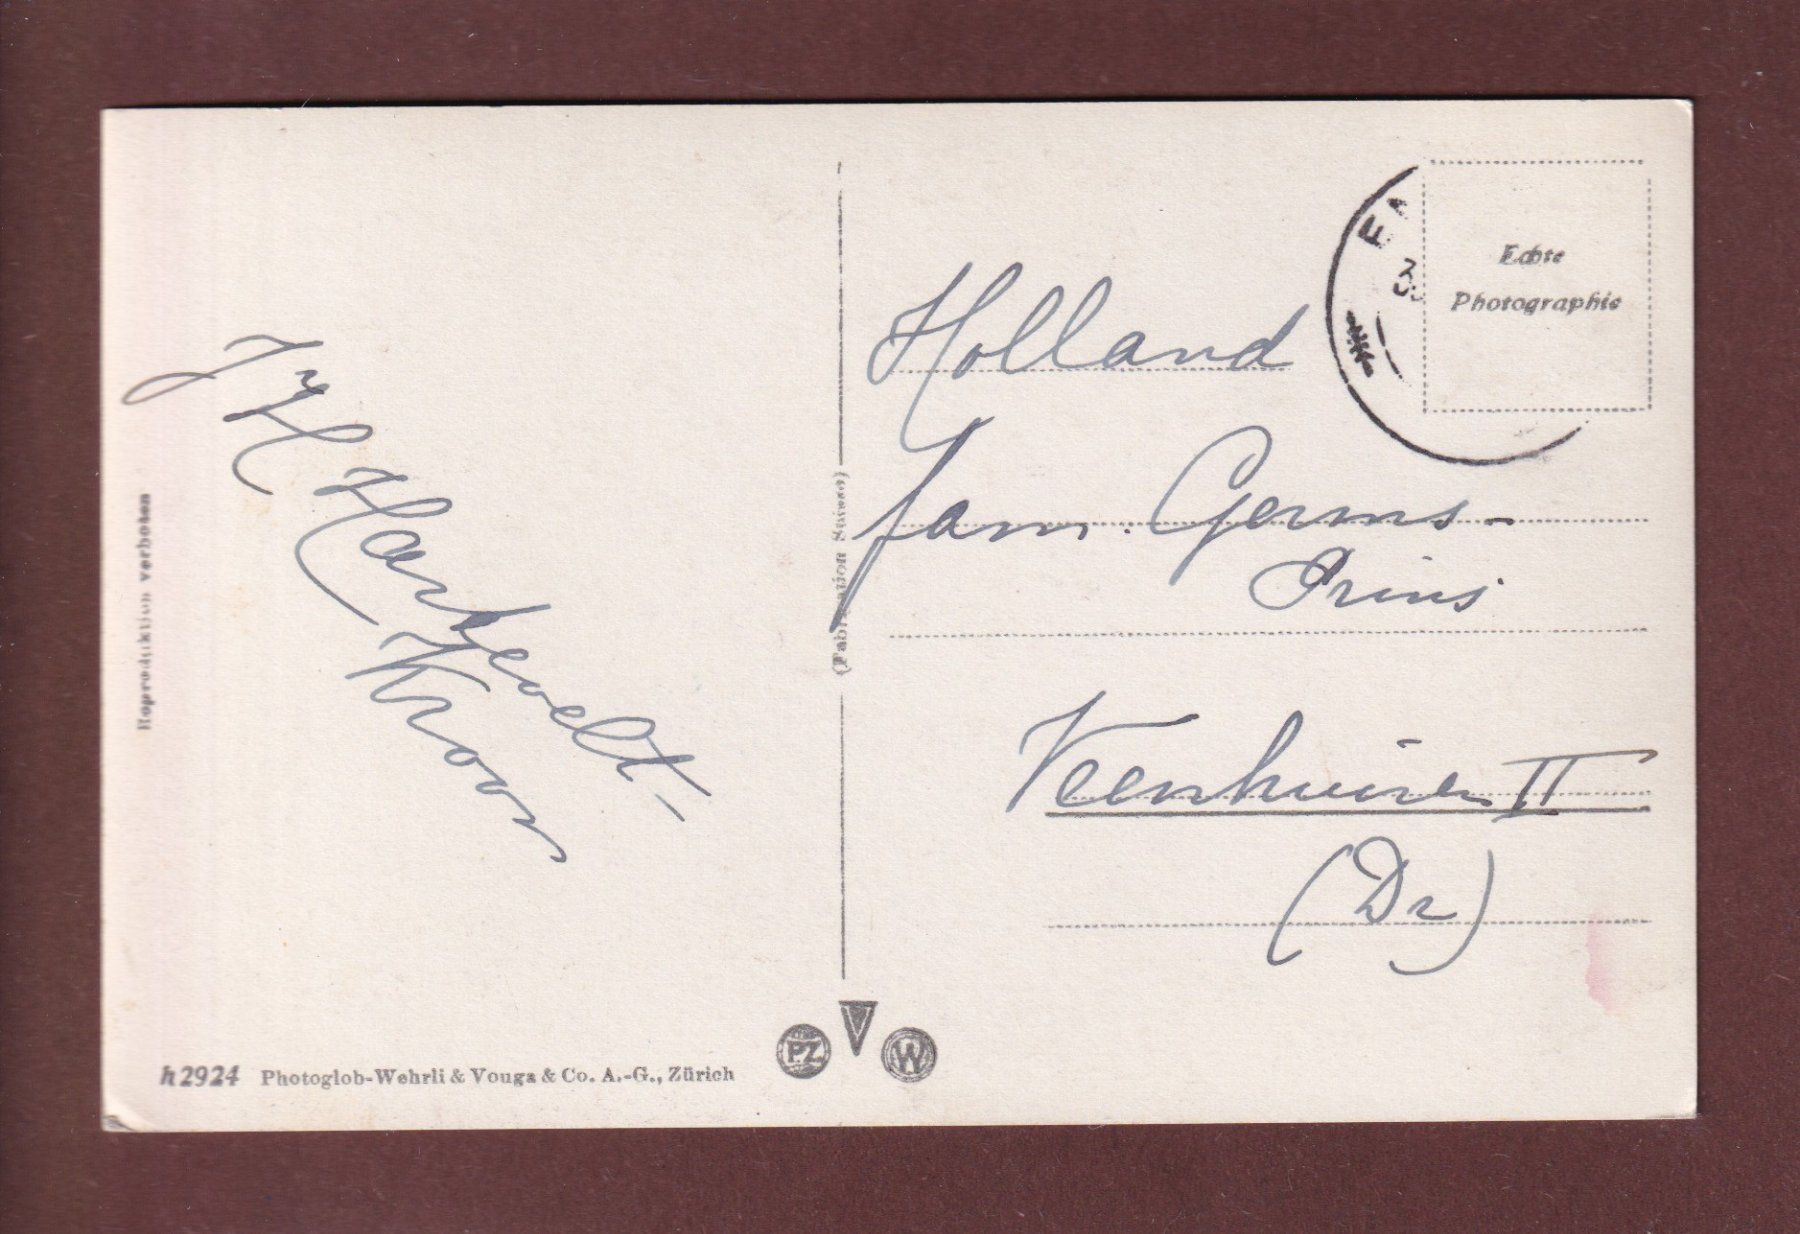 J H Hartevelt-
Kroon
Reproduktion verboten
h2924 Photoglob-Wehrli & Vouga & Co. A.-G., Zürich
(Fabrication Suisse)
PZ V W
Echte
Photographie
Holland
fam. Germs-
Prins
Veenhuizen II
(Dr)